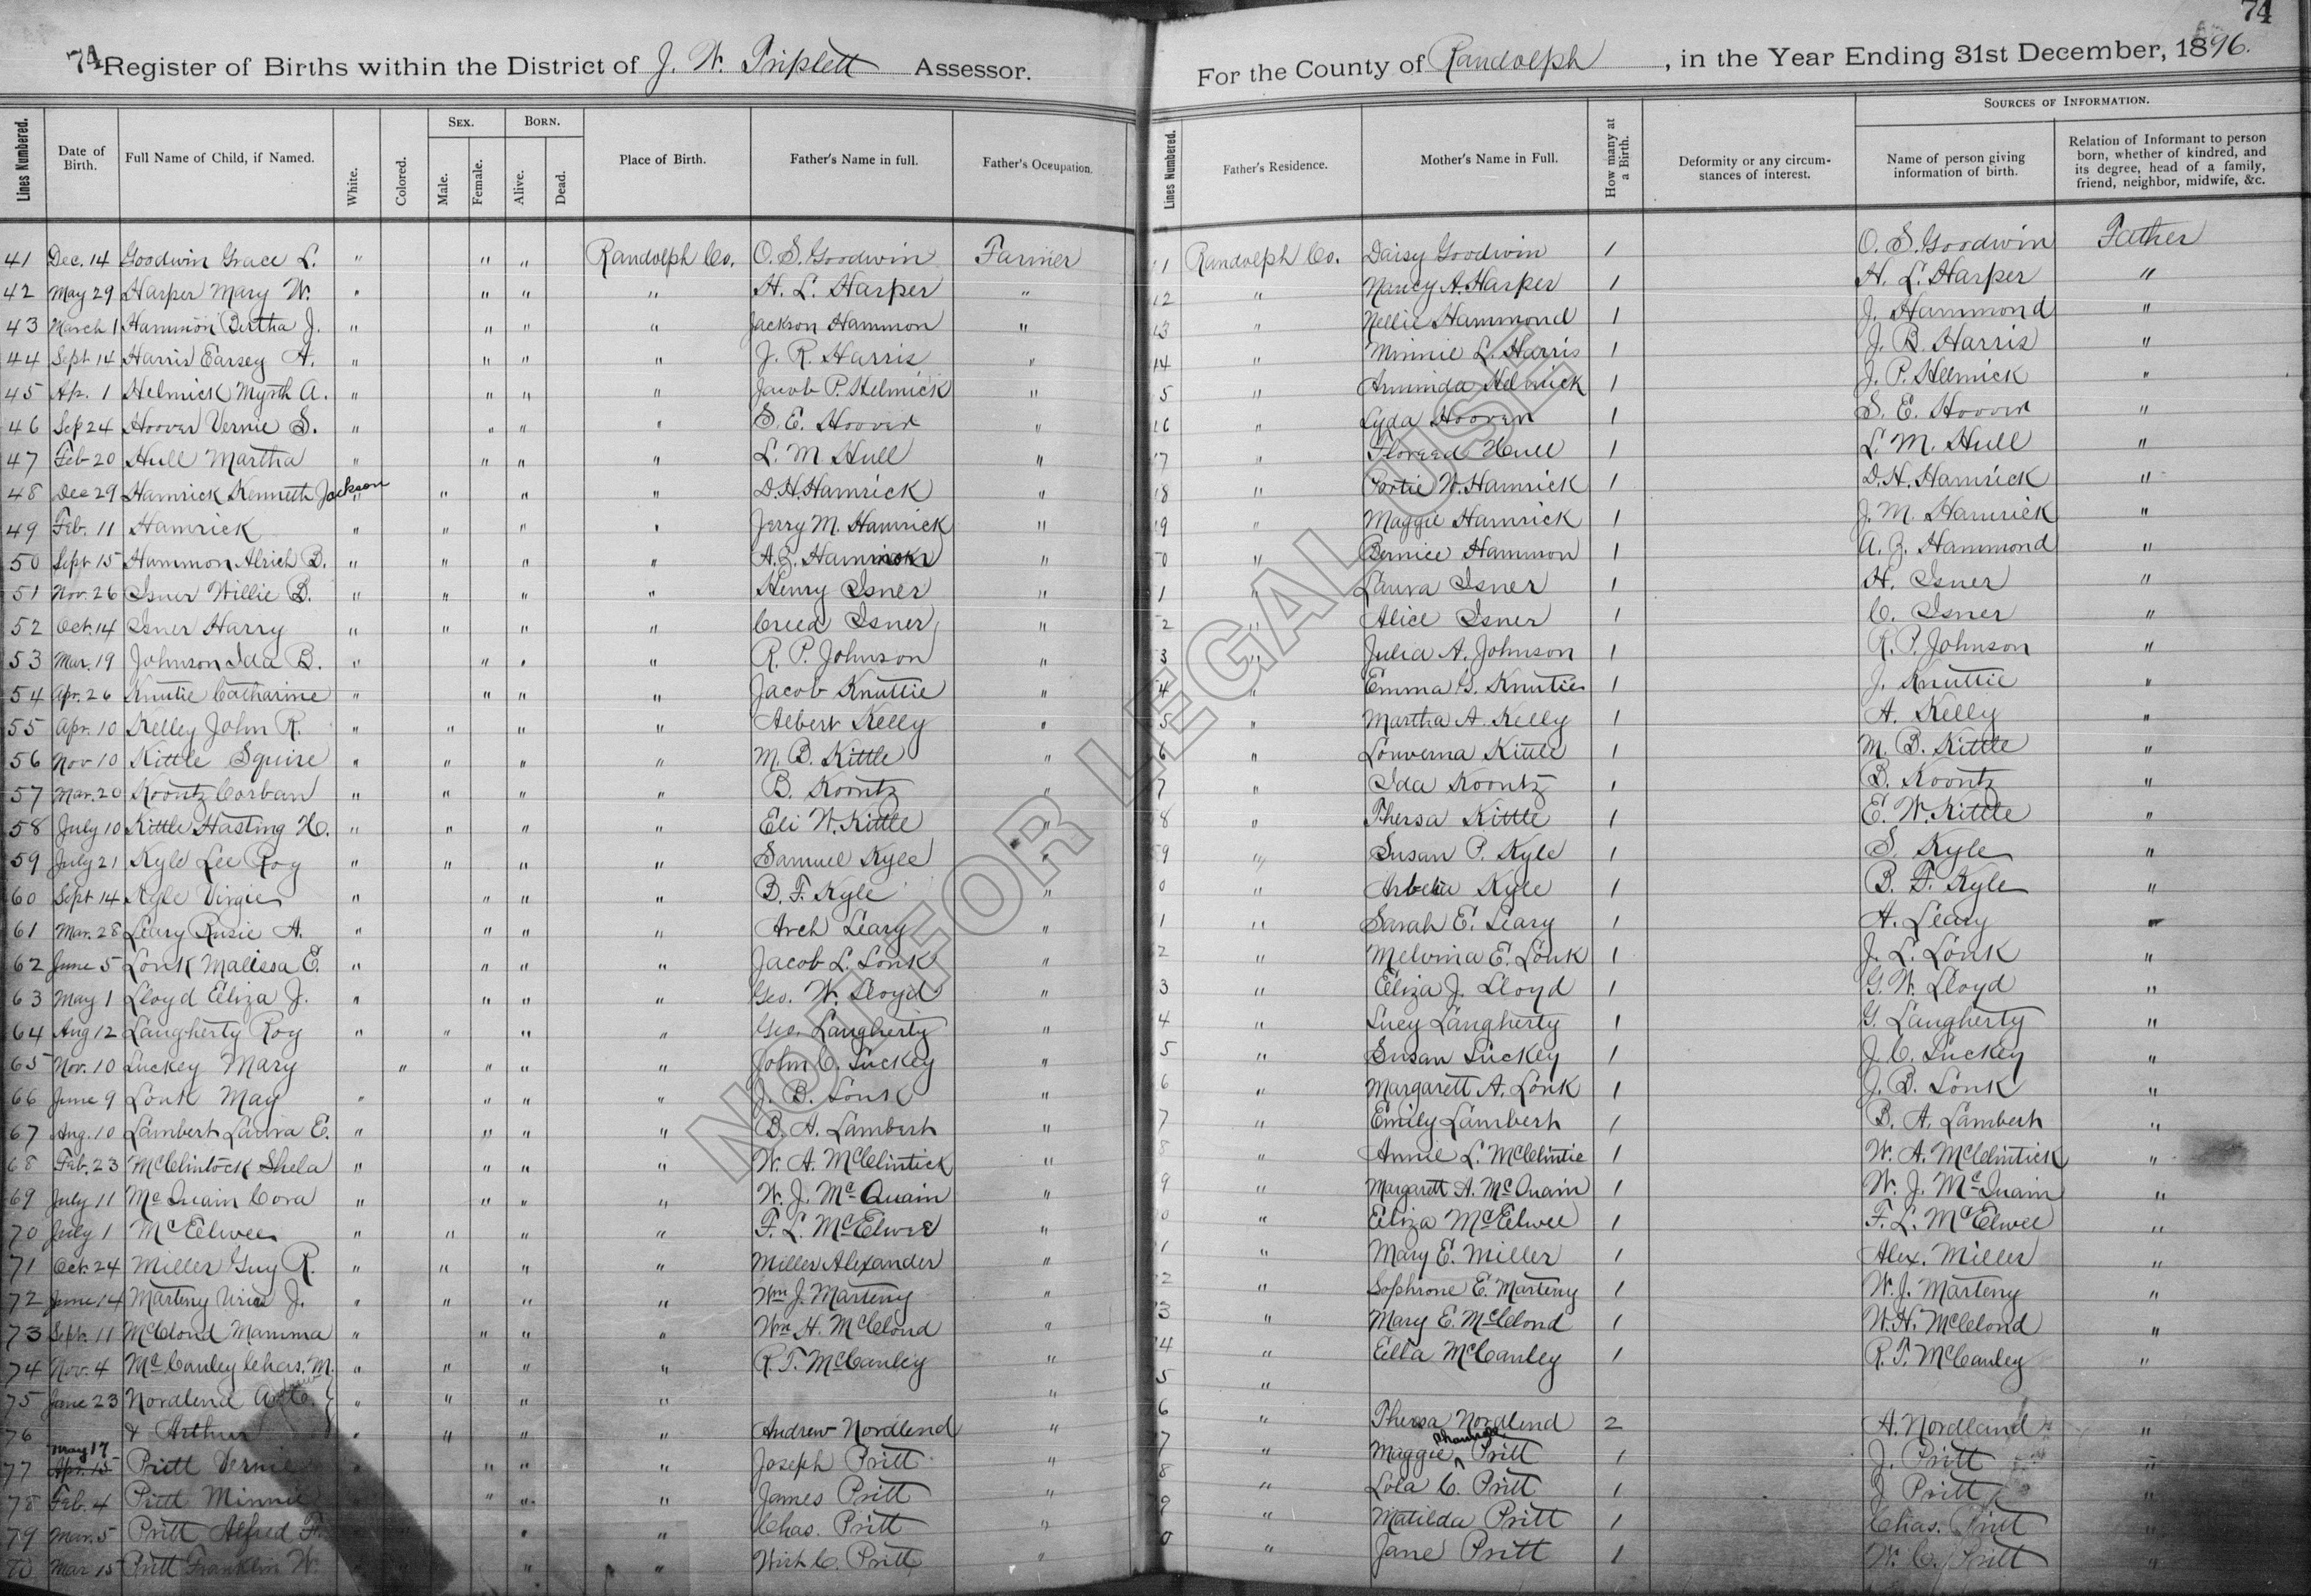 74 Register of Births within the District of J. W. Triplett Assessor.
74
For the County of Randolph, in the Year Ending 31st December, 1896.
Lines Numbered. Date of Birth. Full Name of Child, if Named. White. Colored. Sex. Male. Female. Born. Alive. Dead. Place of Birth. Father's Name in full. Father's Occupation.
Lines Numbered. Father's Residence. Mother's Name in Full. How many at a Birth. Deformity or any circumstances of interest. Sources of Information. Name of person giving information of birth. Relation of Informant to person born, whether of kindred, and its degree, head of a family, friend, neighbor, midwife, &c.
41 Dec. 14 Goodwin Grace L. " " " Randolph Co. O. S. Goodwin Farmer 1 Randolph Co. Daisy Goodwin 1 O. S. Goodwin Father
42 May 29 Harper Mary W. " " " " H. L. Harper " 12 " Nancy A. Harper 1 H. L. Harper "
43 March 1 Hammon Bertha J. " " " " Jackson Hammon " 13 " Nellie Hammond 1 J. Hammond "
44 Sept 14 Harris Earsey A. " " " " J. R. Harris " 14 " Minnie L. Harris 1 J. B. Harris "
45 Ap. 1 Helmick Myrth A. " " " " Jacob P. Helmick " 5 " Arminda Helmick 1 J. P. Helmick "
46 Sep 24 Hoover Vernie S. " " " " S. E. Hoover " 16 " Lyda Hoover 1 S. E. Hoover "
47 Feb 20 Hull Martha " " " " L. M Hull " 17 " Hull 1 L. M. Hull "
48 Dec 29 Hamrick Kenneth Jackson " " " " D. H. Hamrick " 18 " Portie W. Hamrick 1 D. H. Hamrick "
49 Feb. 11 Hamrick " " " " Jerry M. Hamrick " 19 " Maggie Hamrick 1 J. M. Hamrick "
50 Sept 15 Hammon Alrich B. " " " " A. Z. " 0 " Bernice Hammon 1 A. Z. Hammond "
51 Nov. 26 Isner Willie B. " " " " Henry Isner " 1 " Laura Isner 1 H. Isner "
52 Oct. 14 Isner Harry " " " " Creed Isner " 2 " Alice Isner 1 C. Isner "
53 Mar. 19 Johnson Ida B. " " " " R. P. Johnson " 3 " Julia A. Johnson 1 R. P. Johnson "
54 Apr. 26 Knutie Catharine " " " " Jacob Knuttie " 4 " Emma G. Knutie 1 J. Knuttie "
55 Apr. 10 Kelley John R. " " " " Albert Kelly " 5 " Martha A. Kelly 1 A. Kelly "
56 Nov 10 Kittle Squire " " " " M. B. Kittle " 6 " Louverna Kittle 1 M. B. Kittle "
57 Mar. 20 Koontz Corban " " " " B. Koontz " 7 " Ida Koontz 1 B. Koontz "
58 July 10 Kittle Hasting H. " " " " Eli W. Kittle " 8 " Thersa Kittle 1 E. W. Kittle "
59 July 21 Kyle Lee Roy " " " " Samuel Kyle " 59 " Susan P. Kyle 1 S. Kyle "
60 Sept 14 Kyle Virgie " " " " B. F. Kyle " 0 " Kyle 1 B. F. Kyle "
61 Mar. 28 Leary Rusie A. " " " " Arch Leary " 1 " Sarah E. Leary 1 A. Leary "
62 June 5 Lonk Malissa E. " " " " Jacob L. Lonk " 2 " Melvina E. Lonk 1 J. L. Lonk "
63 May 1 Lloyd Eliza J. " " " " Geo. W. Lloyd " 3 " Eliza J. Lloyd 1 G. W. Lloyd "
64 Aug 12 Laugherty Roy " " " " Geo. Laugherty " 4 " Lucy Laugherty 1 G. Laugherty "
65 Nov. 10 Luckey Mary " " " " John C. Luckey " 5 " Susan Luckey 1 J. C. Luckey "
66 June 9 Lonk May " " " " J. B. Lonk " 6 " Margarett A. Lonk 1 J. B. Lonk "
67 Aug. 10 Lambert Laura E. " " " " B. A. Lambert " 7 " Emily Lambert 1 B. A. Lambert "
68 Feb. 23 McClintock Shela " " " " W. A. McClintick " 8 " Annie L. McClintic 1 W. A. McClintick "
69 July 11 McQuain Cora " " " " W. J. McQuain " 9 " Margarett A. McQuain 1 W. J. McQuain "
70 July 1 McElwee " " " " F. L. McElwee " 0 " Eliza McElwee 1 F. L. McElwee "
71 Oct. 24 Miller Guy R. " " " " Miller Alexander " 1 " Mary E. Miller 1 Alex. Miller "
72 June 14 Marteny J. " " " " Wm J. Marteny " 2 " Sophrone E. Marteny 1 W. J. Marteny "
73 Sept. 11 McCloud Mamma " " " " Wm H. McCloud " 3 " Mary E. McCloud 1 W. H. McCloud "
74 Nov. 4 McCauley Chas. M. " " " " R. T. McCauley " 4 " Ella McCauley 1 R. T. McCauley "
75 June 23 Nordlend " " " " " 5 "
76 & Arthur " " " " Andrew Nordlend " 6 " Thersa Nordlend 2 A. Nordland "
May 17
77 Apr. 15 Pritt Vernie " " " " Joseph Pritt " 7 " Maggie Pritt 1 J. Pritt "
78 Feb. 4 Pritt Minnie " " " James Pritt " 8 " Lola C. Pritt 1 J. Pritt "
79 Mar. 5 Pritt Alfred F. " " Chas. Pritt " 9 " Matilda Pritt 1 Chas. Pritt "
Mar 15 Pritt Franklin W. " " Wirt C. Pritt " 0 " Jane Pritt 1 W. C. Pritt "
NOT FOR LEGAL USE